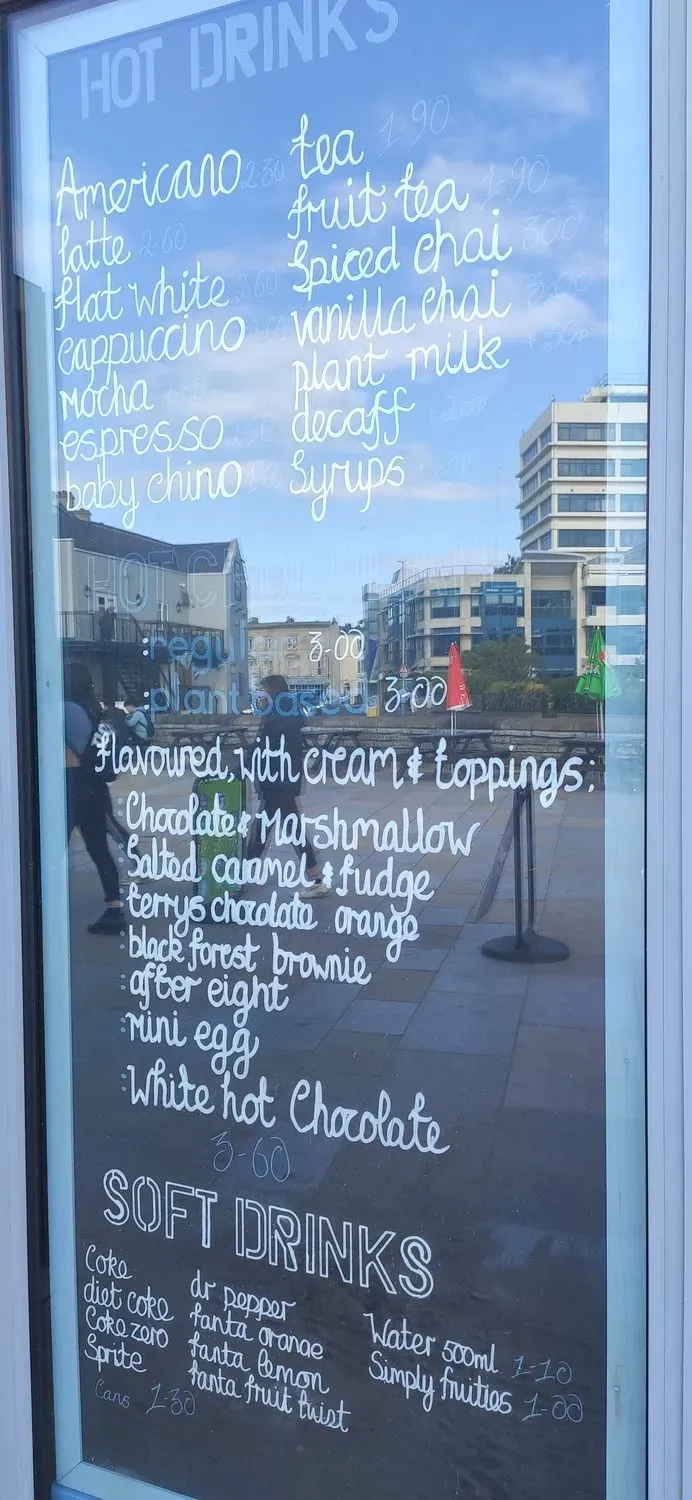 HOT DRINKS
Americano 2-30
latte 2-60
flat white 2-60
cappuccino
mocha
espresso
baby chino
tea 1-90
fruit tea 1-90
Spiced chai 3-00
vanilla chai 3-00
plant milk +30p
decaff +20p
Syrups
HOT CHOCOLATE
:regular 3-00
:plant based 3-00
flavoured, with cream & toppings:
:Chocolate & Marshmallow
:Salted caramel & fudge
:terrys chocolate orange
:black forest brownie
:after eight
:mini egg
:White hot Chocolate
3-60
SOFT DRINKS
Coke
diet coke
Coke zero
Sprite
Cans 1-30
dr pepper
fanta orange
fanta lemon
fanta fruit twist
Water 500ml 1-10
Simply fruities 1-00